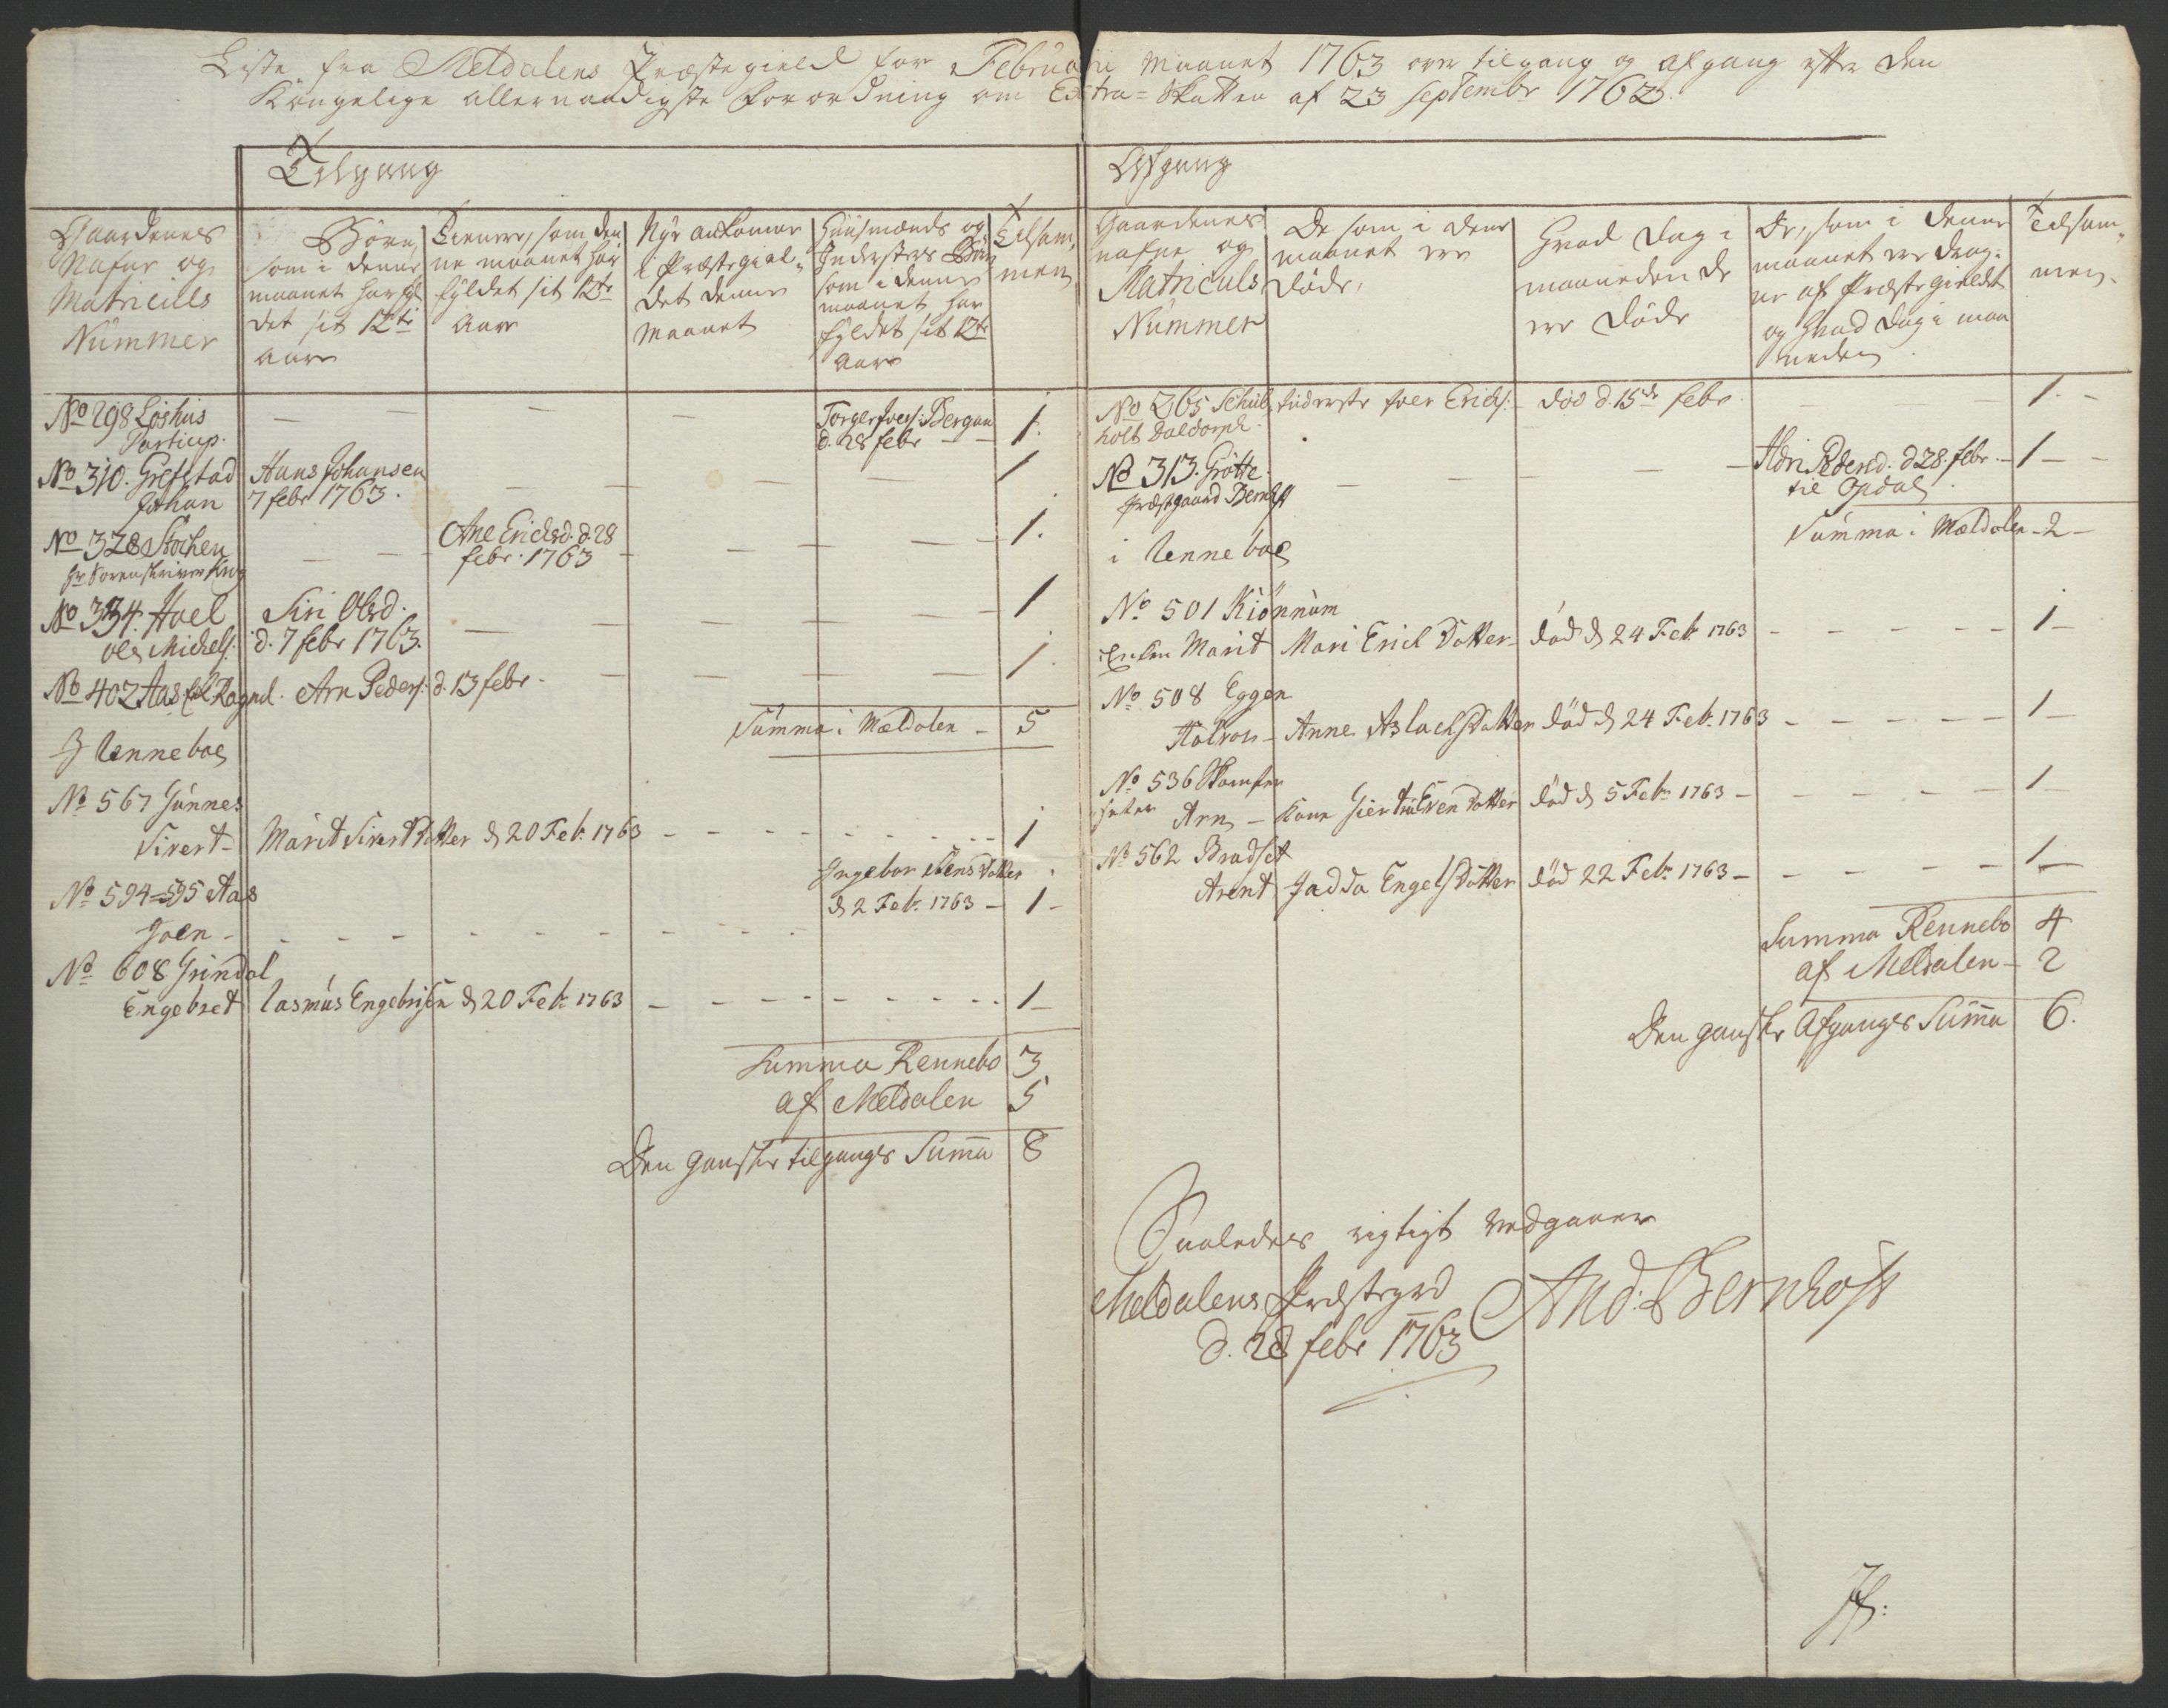 Liste fra Meldalens Præstegield for Februarii Maanet 1763 over tilgang og afgang efter den
Kongelige allernaadigste Forordning om Extra-Skatten af 23 Septembr 1762.
Tilgang
Gaardenes
Nafne og
Matriculs
Nummer
Børn,
som i denne
maanet har fyl
det sit 12te
Aar
Tienere, som den
ne maanet har
fyldet sit 12te
Aar
Nye ankomne
i Præstegiel-
det denne
Maanet
Huusmænds og
Indersters Børn
som i denne
maanet har
fyldet sit 12te
Aar
Tilsam,
men
No 298 Løshus
Torger Joers: Bergan
d. 28 febr — 1.
No 310. Grefstad
Johan
Hans Johansen
7 febr 1763.
1
No 328 Stochen
Hr Sorenskriver Krog
Ane Ericksd. d. 28
febr. 1763
1.
No 334. Hoel
Ole Michels:
Siri Olsd.
d. 7 febr 1763.
1
No 402 Aas Ragnd. Arn Peders: d. 13 febr.
1.
Summa i Meldalen - 5
I Renneboe
No 567 Gunnes
Sivert - Marit Sivert Dotter d 20 Feb. 1763 1
No 594=595 Aas
Joen -
Ingebor Jens Dotter
d 2 Feb. 1763 - 1 -
No 608 Grindal
Engebret Rasmus Engebrigsen d 20 Feb. 1763 - 1 -
Summa Rennebo 3
af Meldalen 5
Den ganske tilgangs Summa 8
Afgang
Gaardenes
nafne og
Matriculs
Nummer
De som i denne
maanet ere
døde,
Hvad dag i
maaneden de
ere døde
De, som i denne
maanet ere drag-
ne af Præstegieldet
og hvad dag i maa
neden
Tilsam,
men.
No 265 Schiub
holt Daldorph.
Inderste Joer Ericks: død d. 15de febr. 1. -
No 313. Grøtte.
Præstgaard Bernhft
Adri Pedersd. d 28. febr. - 1 -
til Opdal.
Summa i Meldalen - 2 -
i Renneboe
No 501 Kiønnum
Enken Marit Mari Erick Dotter - død d 24 Feb. 1763 - 1 -
No 508 Eggen
Halvor - Anne Aslachs Dotter død d 24 Feb. 1763 - 1 -
No 536 Skamfer
seter Arn - Kone Giertru Sven Dotter død d 5 Feb. 1763 - 1 -
No 562 Bradset
Arent Jadda Engels Dotter død 22 Feb. 1763 - 1 -
Summa Rennebo 4
af Meldalen - 2
Den ganske Afgangs Summa 6.
Saaledes rigtigt vedgaaer
Meldalens Præstegrd
d. 28 febr 1763
And: Bernhoft